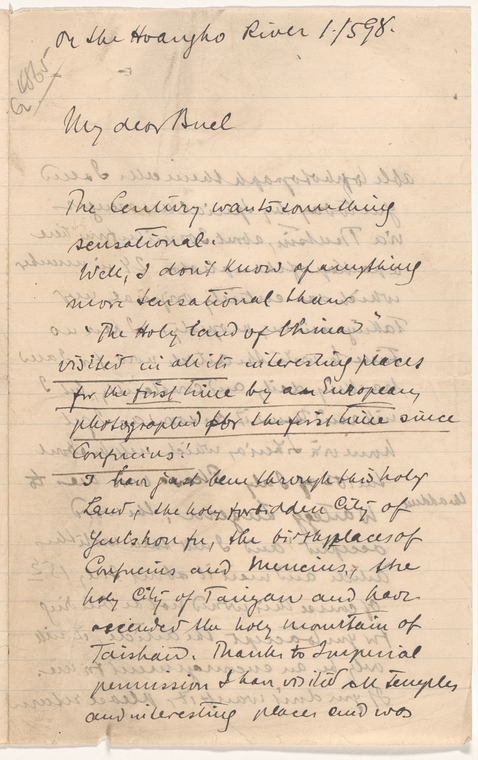 On the Hoangho River 1./5 98.
My dear Buel
The Century wants something
sensational.
Well, I don't know of anything
more sensational than
"The Holy land of China"
visited in all its interesting places
for the first time by an European,
photographed for the first time since
Confucius!
I have just been through this holy
Land, the holy forbidden City of
Yentshoufu, the birthplaces of
Confucius and Mencius, the
holy City of Taingan and have
ascended the holy mountain of
Taishan. Thanks to Imperial
permission I have visited all temples
and interesting places and was